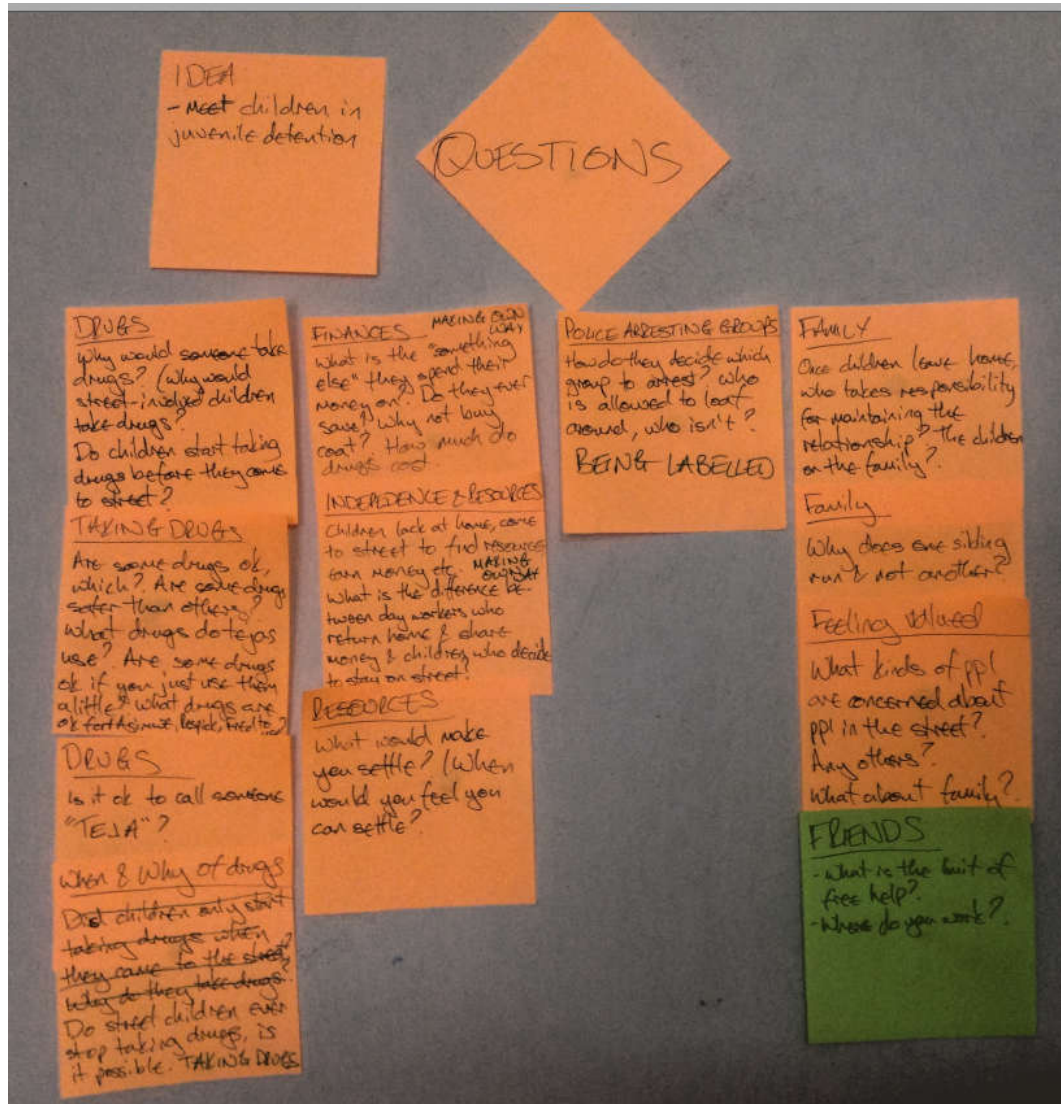 IDEA
- MEET children in
juvenile detention
QUESTIONS
DRUGS
Why would someone take
drugs? (Why would
street-involved children
take drugs?
Do children start taking
drugs before they come
to street?
TAKING DRUGS
Are some drugs ok,
which? Are some drugs
safer than others?
What drugs do tejas
use? Are some drugs
ok if you just use them
a little? What drugs are
ok for
DRUGS
Is it ok to call someone
"TEJA"?
When & Why of drugs
children only start
taking drugs when
they came to the street?
Why do they take drugs?
Do street children ever
stop taking drugs, is
it possible. TAKING DRUGS
FINANCES MAKING OWN
WAY
What is the "something
else" they spend their
money on? Do they ever
save? Why not buy
coat? How much do
drugs cost.
INDEPENDENCE & RESOURCES
Children lack at home, come
to street to find resources
earn money etc. MAKING
OWN WAY
What is the difference be-
tween day workers who
return home & share
money & children who decide
to stay on street?
RESOURCES
What would make
you settle? (When
would you feel you
can settle?
POLICE ARRESTING GROUPS
How do they decide which
group to arrest? Who
is allowed to loaf
around, who isn't?
BEING LABELLED
FAMILY
Once children leave home,
who takes responsibility
for maintaining the
relationship? The children
or the family?
Family
Why does one sibling
run & not another?
Feeling Valued
What kinds of ppl
are concerned about
ppl in the street?
Any others?
What about family?
FRIENDS
- What is the limit of
free help?
- Where do you work?